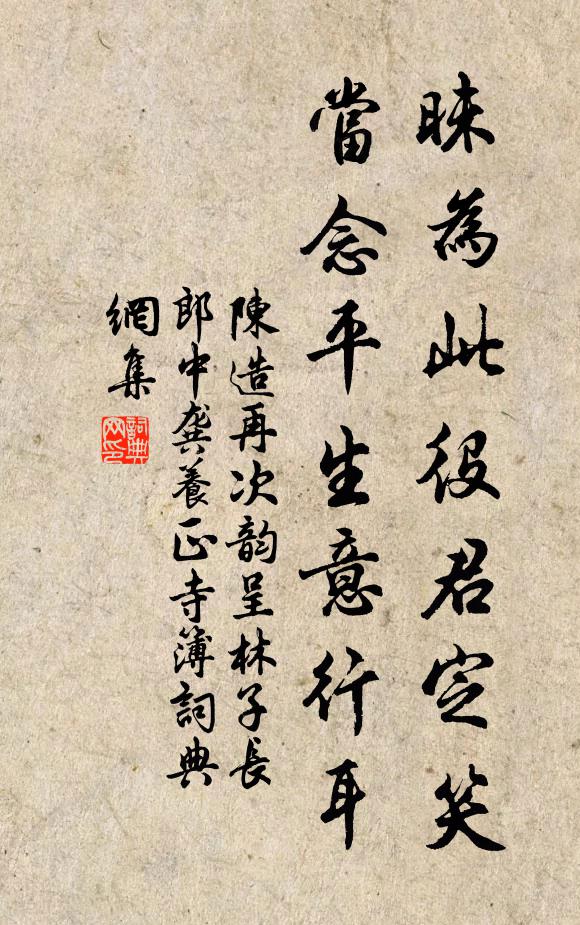 睐為此役君定笑
當念平生意行耳
陳造再次韵呈林子長
郎中龚養正寺簿詞典
網集
詞典网印